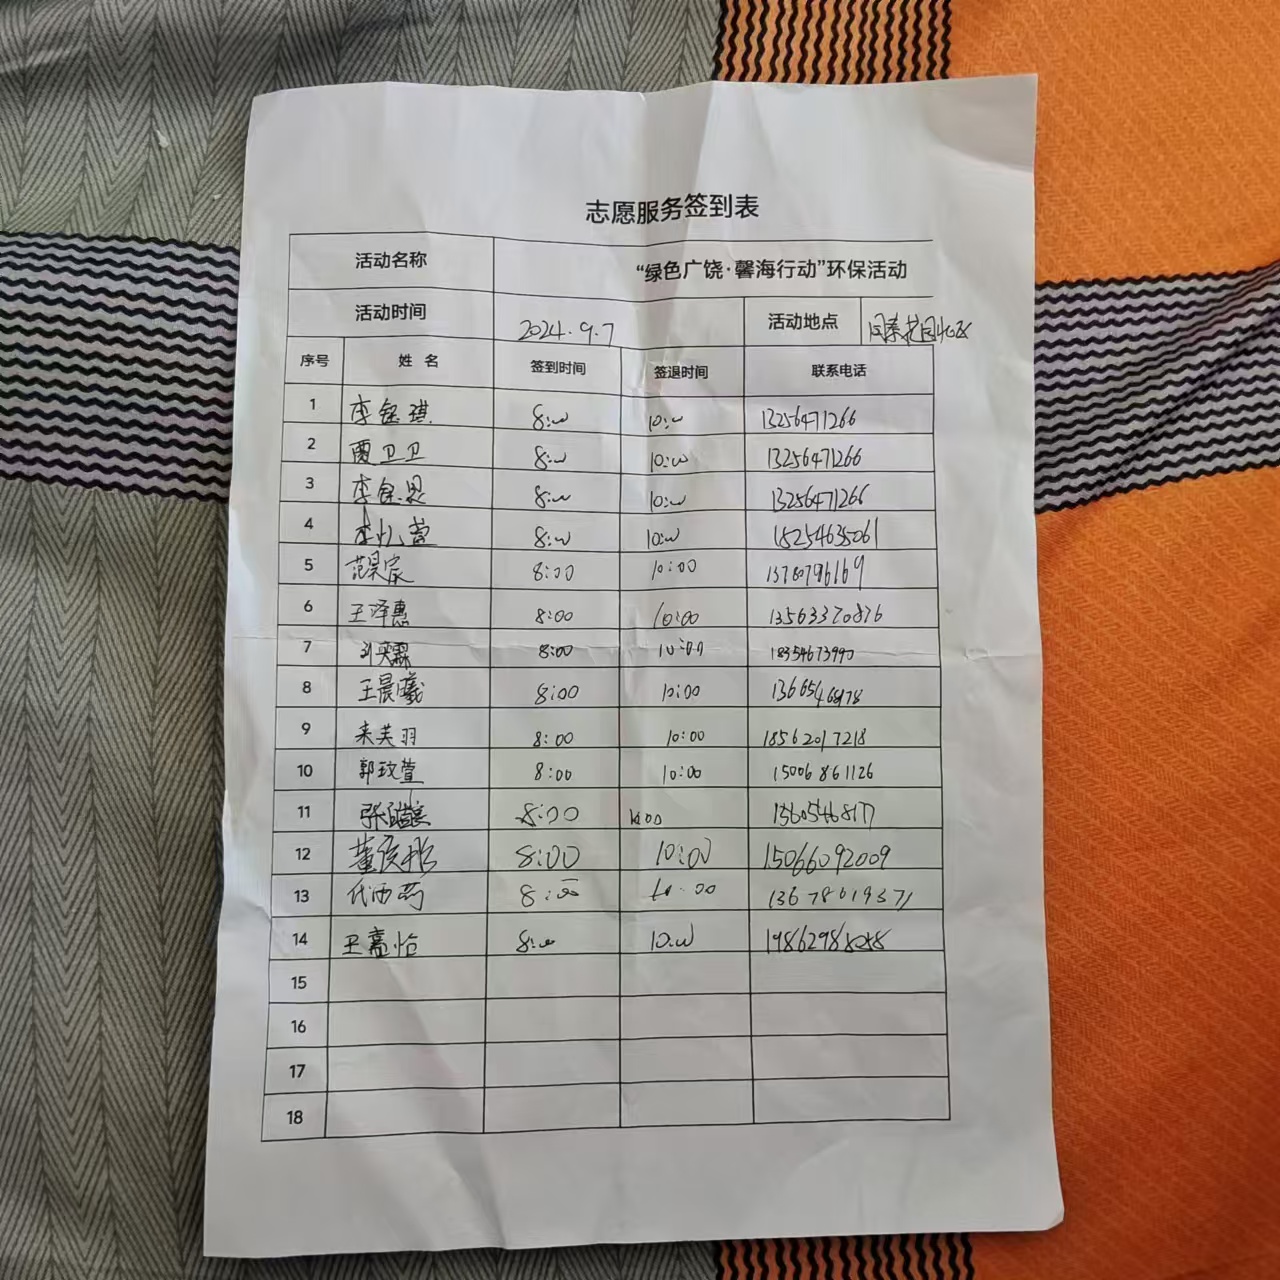 志愿服务签到表
活动名称 “绿色广饶·馨海行动”环保活动
活动时间 2024.9.7 活动地点
序号 姓 名 签到时间 签退时间 联系电话
1 李 琪 8:00 10:00 13256471266
2 贾卫卫 8:00 10:00 13256471266
3 李 恩 8:00 10:00 13256471266
4 李忆萱 8:00 10:00 15254635061
5 范昊宸 8:00 10:00
6 王泽惠 8:00 10:00 13563370876
7 刘奕霖 8:00 10:00 18354673990
8 王晨曦 8:00 10:00
9 来芙羽 8:00 10:00 18562017218
10 郭玟萱 8:00 10:00 15006861126
11 张 8:00 10:00 13605468177
12 董 彤 8:00 10:00 15066092009
13 代 8:00 10:00
14 王嘉怡 8:00 10:00
15
16
17
18